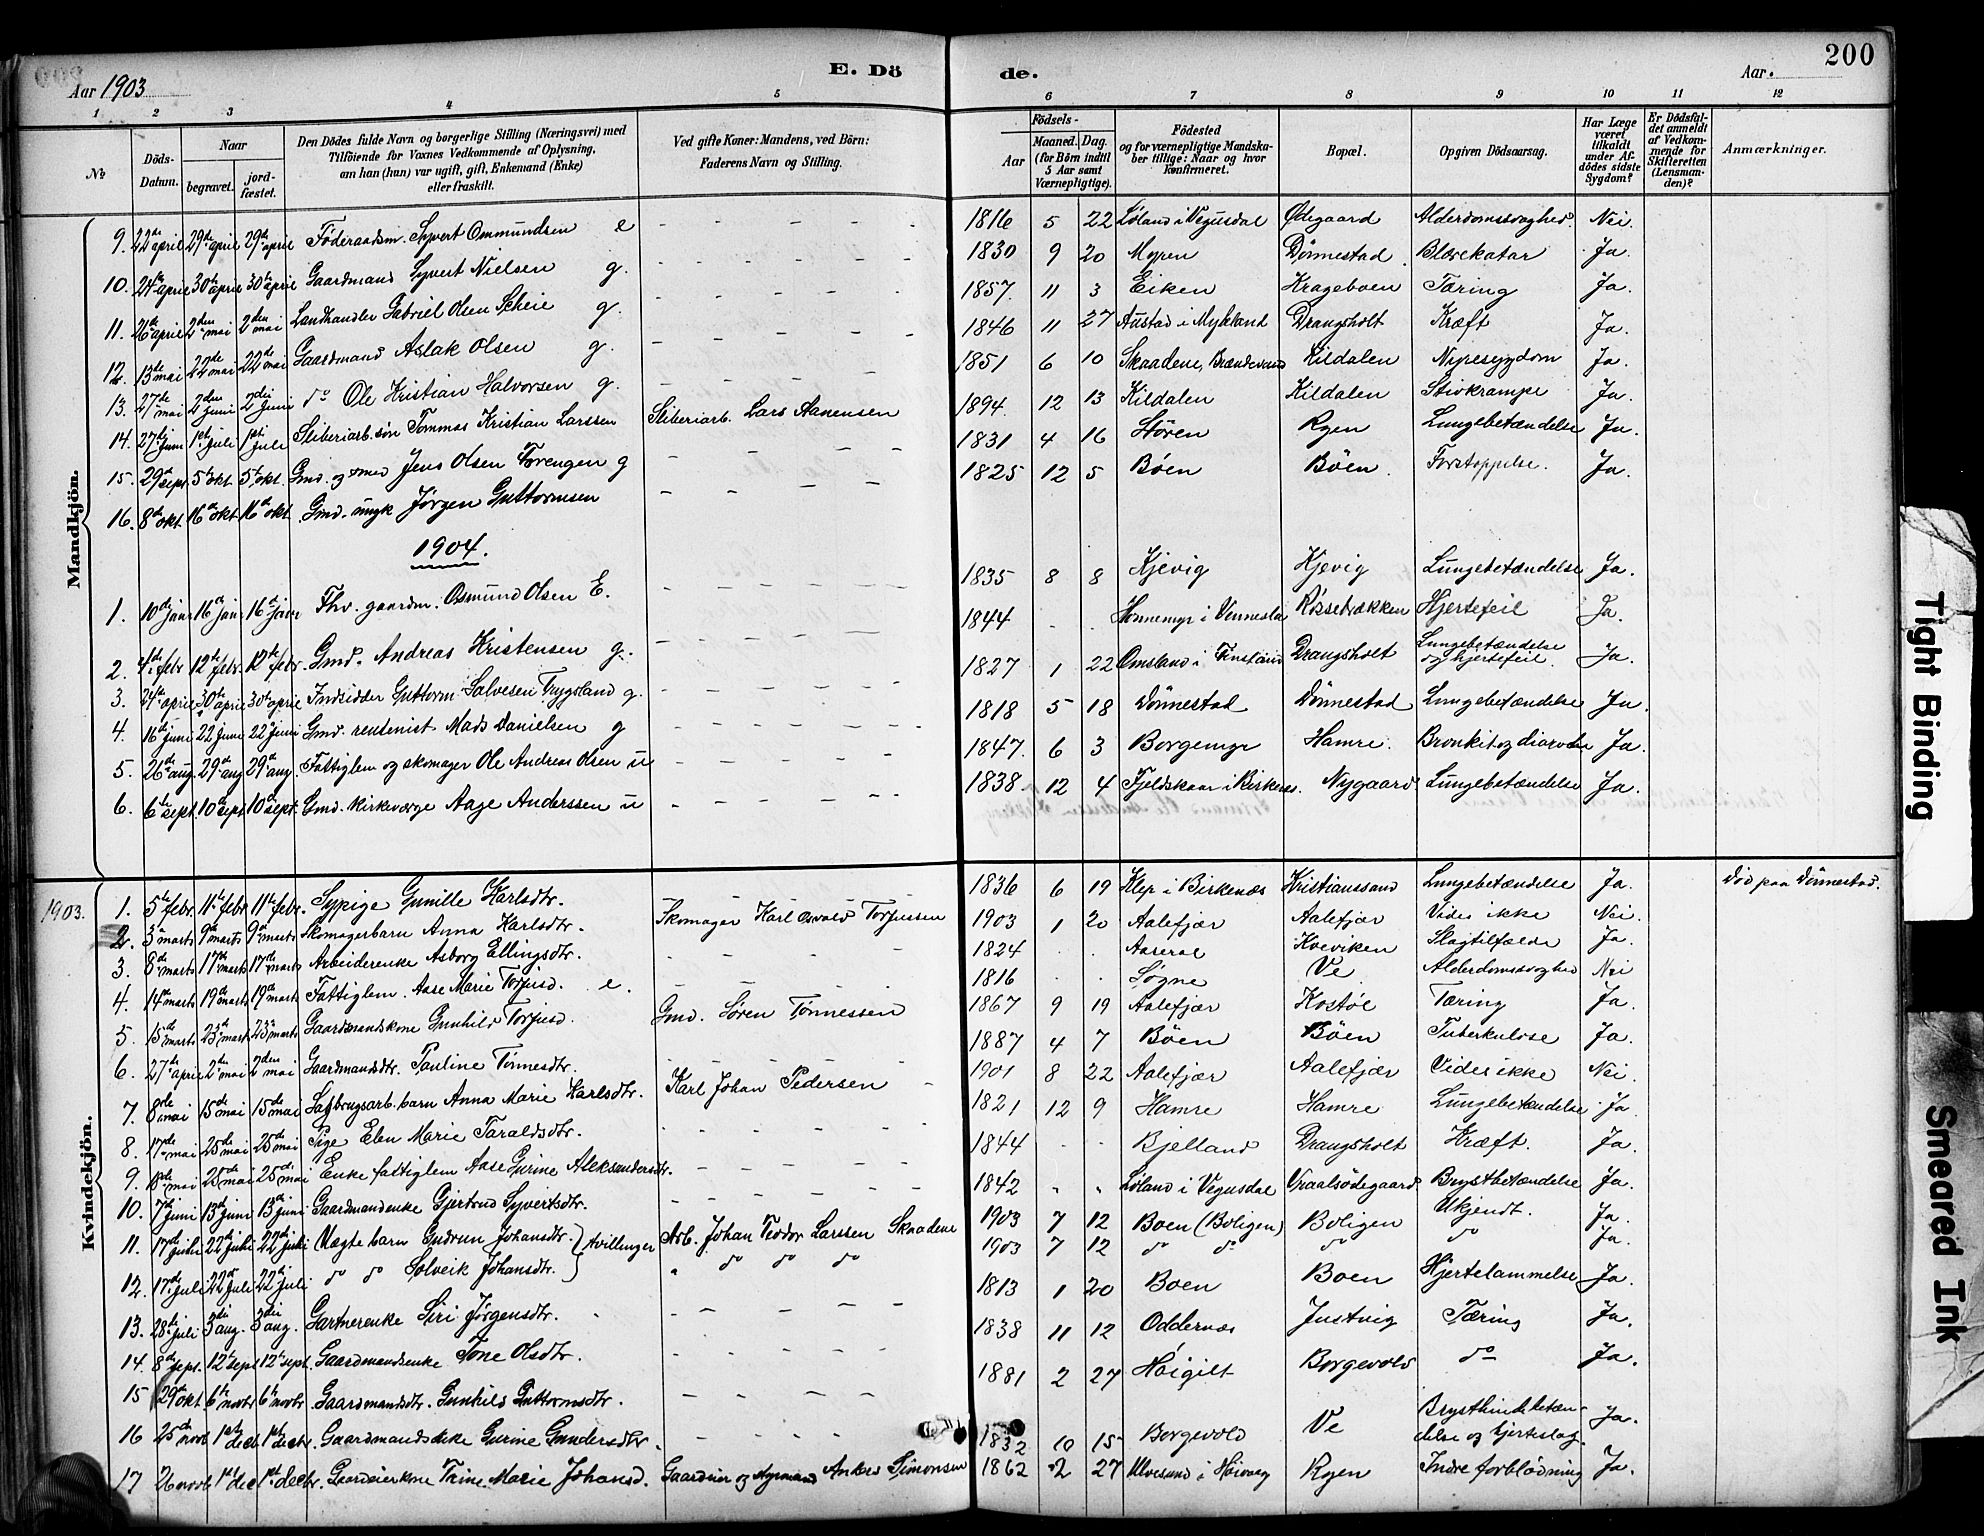 200
Aar 1903
E. Dö
de.
Aar.
1 2 3 4 5 6 7 8 9 10 11 12
№
Döds-Datum.
Naar
begravet.
jord-fæstet.
Den Dödes fulde Navn og borgerlige Stilling (Næringsvei) med
Tilföiende for Voxnes Vedkommende af Oplysning,
om han (hun) var ugift, gift, Enkemand (Enke)
eller fraskilt.
Ved gifte Koner: Mandens, ved Börn:
Faderens Navn og Stilling.
Födsels-
Aar
Maaned. Dag.
(for Börn indtil
5 Aar samt
Værnepligtige).
Födested
og for værnepligtige Mandska-
ber tillige: Naar og hvor
konfirmeret.
Bopæl.
Opgiven Dödsaarsag.
Har Læge
været
tilkaldt
under Af-
dödes sidste
Sygdom?
Er Dödsfal-
det anmeldt
af Vedkom-
mende for
Skifteretten
(Lensman-
den)?
Anmærkninger.
Mandkjön.
9. 22de april 29de april 29de april Föderaadsm. Syvert Ommundsen e 1816 5 22 Løland i Vegusdal Ødegaard Alderdomssvaghed. Nei.
10. 24de april 30te april 30te april Gaardmand Syvert Nielsen g. 1830 9 20 Myren Dønnestad Blærekatar Ja.
11. 26de april 2den mai 2den mai Landhandler Gabriel Olsen Scheie g. 1857. 11 3 Eiken Krageboen Tæring Ja.
12. 13de mai 22de mai 22de mai Gaardmand Aslak Olsen g. 1846 11 27 Austad i Mykland Drangsholt Kræft Ja.
13. 27de mai 2den juni 2den juni do Ole Kristian Halvorsen g. 1851 6 10 Skaadene, Kildalen Nyresygdom Ja.
14. 27de juni 1ste juli 1ste juli Sliberiarb. søn Tommas Kristian Larssen Sliberiarb. Lars Aanensen 1894. 12 13 Kildalen Kildalen Stivkrampe Ja.
15. 29de sept. 5te okt. 5te okt. Gmd. og smed Jens Olsen Torengen g 1831 4 16 Støren Ryen Lungebetændelse Ja.
16. 8de okt. 16de okt. 16de okt. Gmd. ungk Jørgen Guttormsen 1825 12 5 Böen Böen. Forstoppelse. Ja.
1904.
1. 10de jan 16de jan 16de jan Fhv. gaardm. Osmund Olsen E. 1835 8 8 Kjevig Kjevig Lungebetændelse Ja.
2. 4de febr. 12te febr. 12te febr. Gmd. Andreas Kristensen g. 1844 Honnemyr i Vennesla Røssebækken Hjertefeil Ja.
3. 24de april 30te april 30te april Indsidder Guttorm Salvesen Trygsland g. 1827 1 22 Omsland i Finsland Drangsholt Lungebetændelse og hjertefeil. Ja.
4. 16de juni 22 juni 22 juni Gmd. rentenist Mads Danielsen g 1818 5 18 Dönnestad Dönnestad Lungebetændelse Ja.
5. 26de aug 29de aug 29de aug. Fattiglem og skomager Ole Andreas Olsen u 1847. 6 3 Borgemyr Hamre. Bronkit og diarrhe Ja.
6. 6te sept. 10de sept 10de sept. Gmd. kirkeværge Aage Anderssen u 1838 12 4 Fjeldskaar i Birkenes. Nygaard Lungebetændelse Ja.
Kvindekjön.
1903.
1. 5te febr. 11te febr 11te febr. Sypige Gunille Karlsdtr. 1836 6 19 Klep i Birkenæs Kristianssand Lungebetændelse Ja. Död paa Dönnestad.
2. 3 marts 9de marts 9de marts Skomagerbarn Anna Karlsdtr. Skomager Karl Osvald Torjussen 1903 1 20 Aalefjær Aalefjær Vides ikke Nei.
3. 8de marts 17de marts 17de marts Arbeiderenke Asborg Ellingsdtr. 1824 Aaseral Kveviken Slagtilfælde Ja.
4. 14de marts 19de marts 19de marts Fattiglem. Aase Marie Torjusd. e. 1816 Søgne Ve Alderdomssvaghed Nei
5. 15de marts 23de marts 23de marts Gaardmandskone Gunhild Torjusd. Gmd. Sören Tönnessen 1867 9 19 Aalefjær Kostöl Tæring Ja.
6. 27de april 2den mai 2den mai Gaardmandsdtr. Pauline Tönnesdtr. 1887 4 7 Böen Böen Tuberkulose Ja.
7. 8de mai 15de mai 15de mai barn Anna Marie Karlsdtr. Karl Johan Pedersen 1901 8 22 Aalefjær Aalefjær Vides ikke Nei.
8. 17de mai 25de mai 25de mai Pige Elen Marie Taraldsdtr. 1821 12 9 Hamre Hamre Lungebetændelse Ja
9. 18de mai 25de mai 25de mai Enke fattiglem Aase Gurine Aleksandersdtr. 1844 Bjelland Drangsholt Kræft. Ja.
10. 7de juni 13de juni 13de juni Gaardmandenke Gjertrud Syvertsdtr. 1842 Løland i Vegusdal Vraalsödegaard Brystbetændelse Ja.
11. 17de juli 22de juli 22de juli Uægte barn Gudrun Johansdtr. } tvillinger Arb. Johan Teodor Larssen Skaadene 1903 7 12 Boen (Boligen) Boligen Ukjendt. Ja.
12. 17de juli 22de juli 22de juli do do Solveik Johansdtr. } " do do do 1903 7 12 do do do do Ja.
13. 28de juli 3die aug. 3die aug. Gartnerenke Siri Jørgensdtr. 1813 1 20 Boen Boen Hjertelammelse Ja.
14. 8de sept. 12te sept 12te sept. Gaardmandsenke Tone Olsdtr. 1838 11 12 Oddernæs Justvig Tæring Ja.
15 29de okt 6te novbr 6te novbr. Gaardmandsdtr. Gunhild Guttormsdtr. 1881 2 27 Höigilt Borgevold do Ja.
16 25de novb 1ste decb 1ste decbr. Gaardmandsenke Gurine Gundersdtr. 1832 10 15 Borgevold Ve Brysthindebetæn-delse og hjerteslag. Ja.
17 26 novb 1ste dec 1ste decbr. Gaardeierkone Trine Marie Johansd. Gaardeier og Anders Simonsen 1862 2 27 Ulvesund i Höivaag Ryen Indre forblödning Ja.
Tight Binding
Smeared Ink